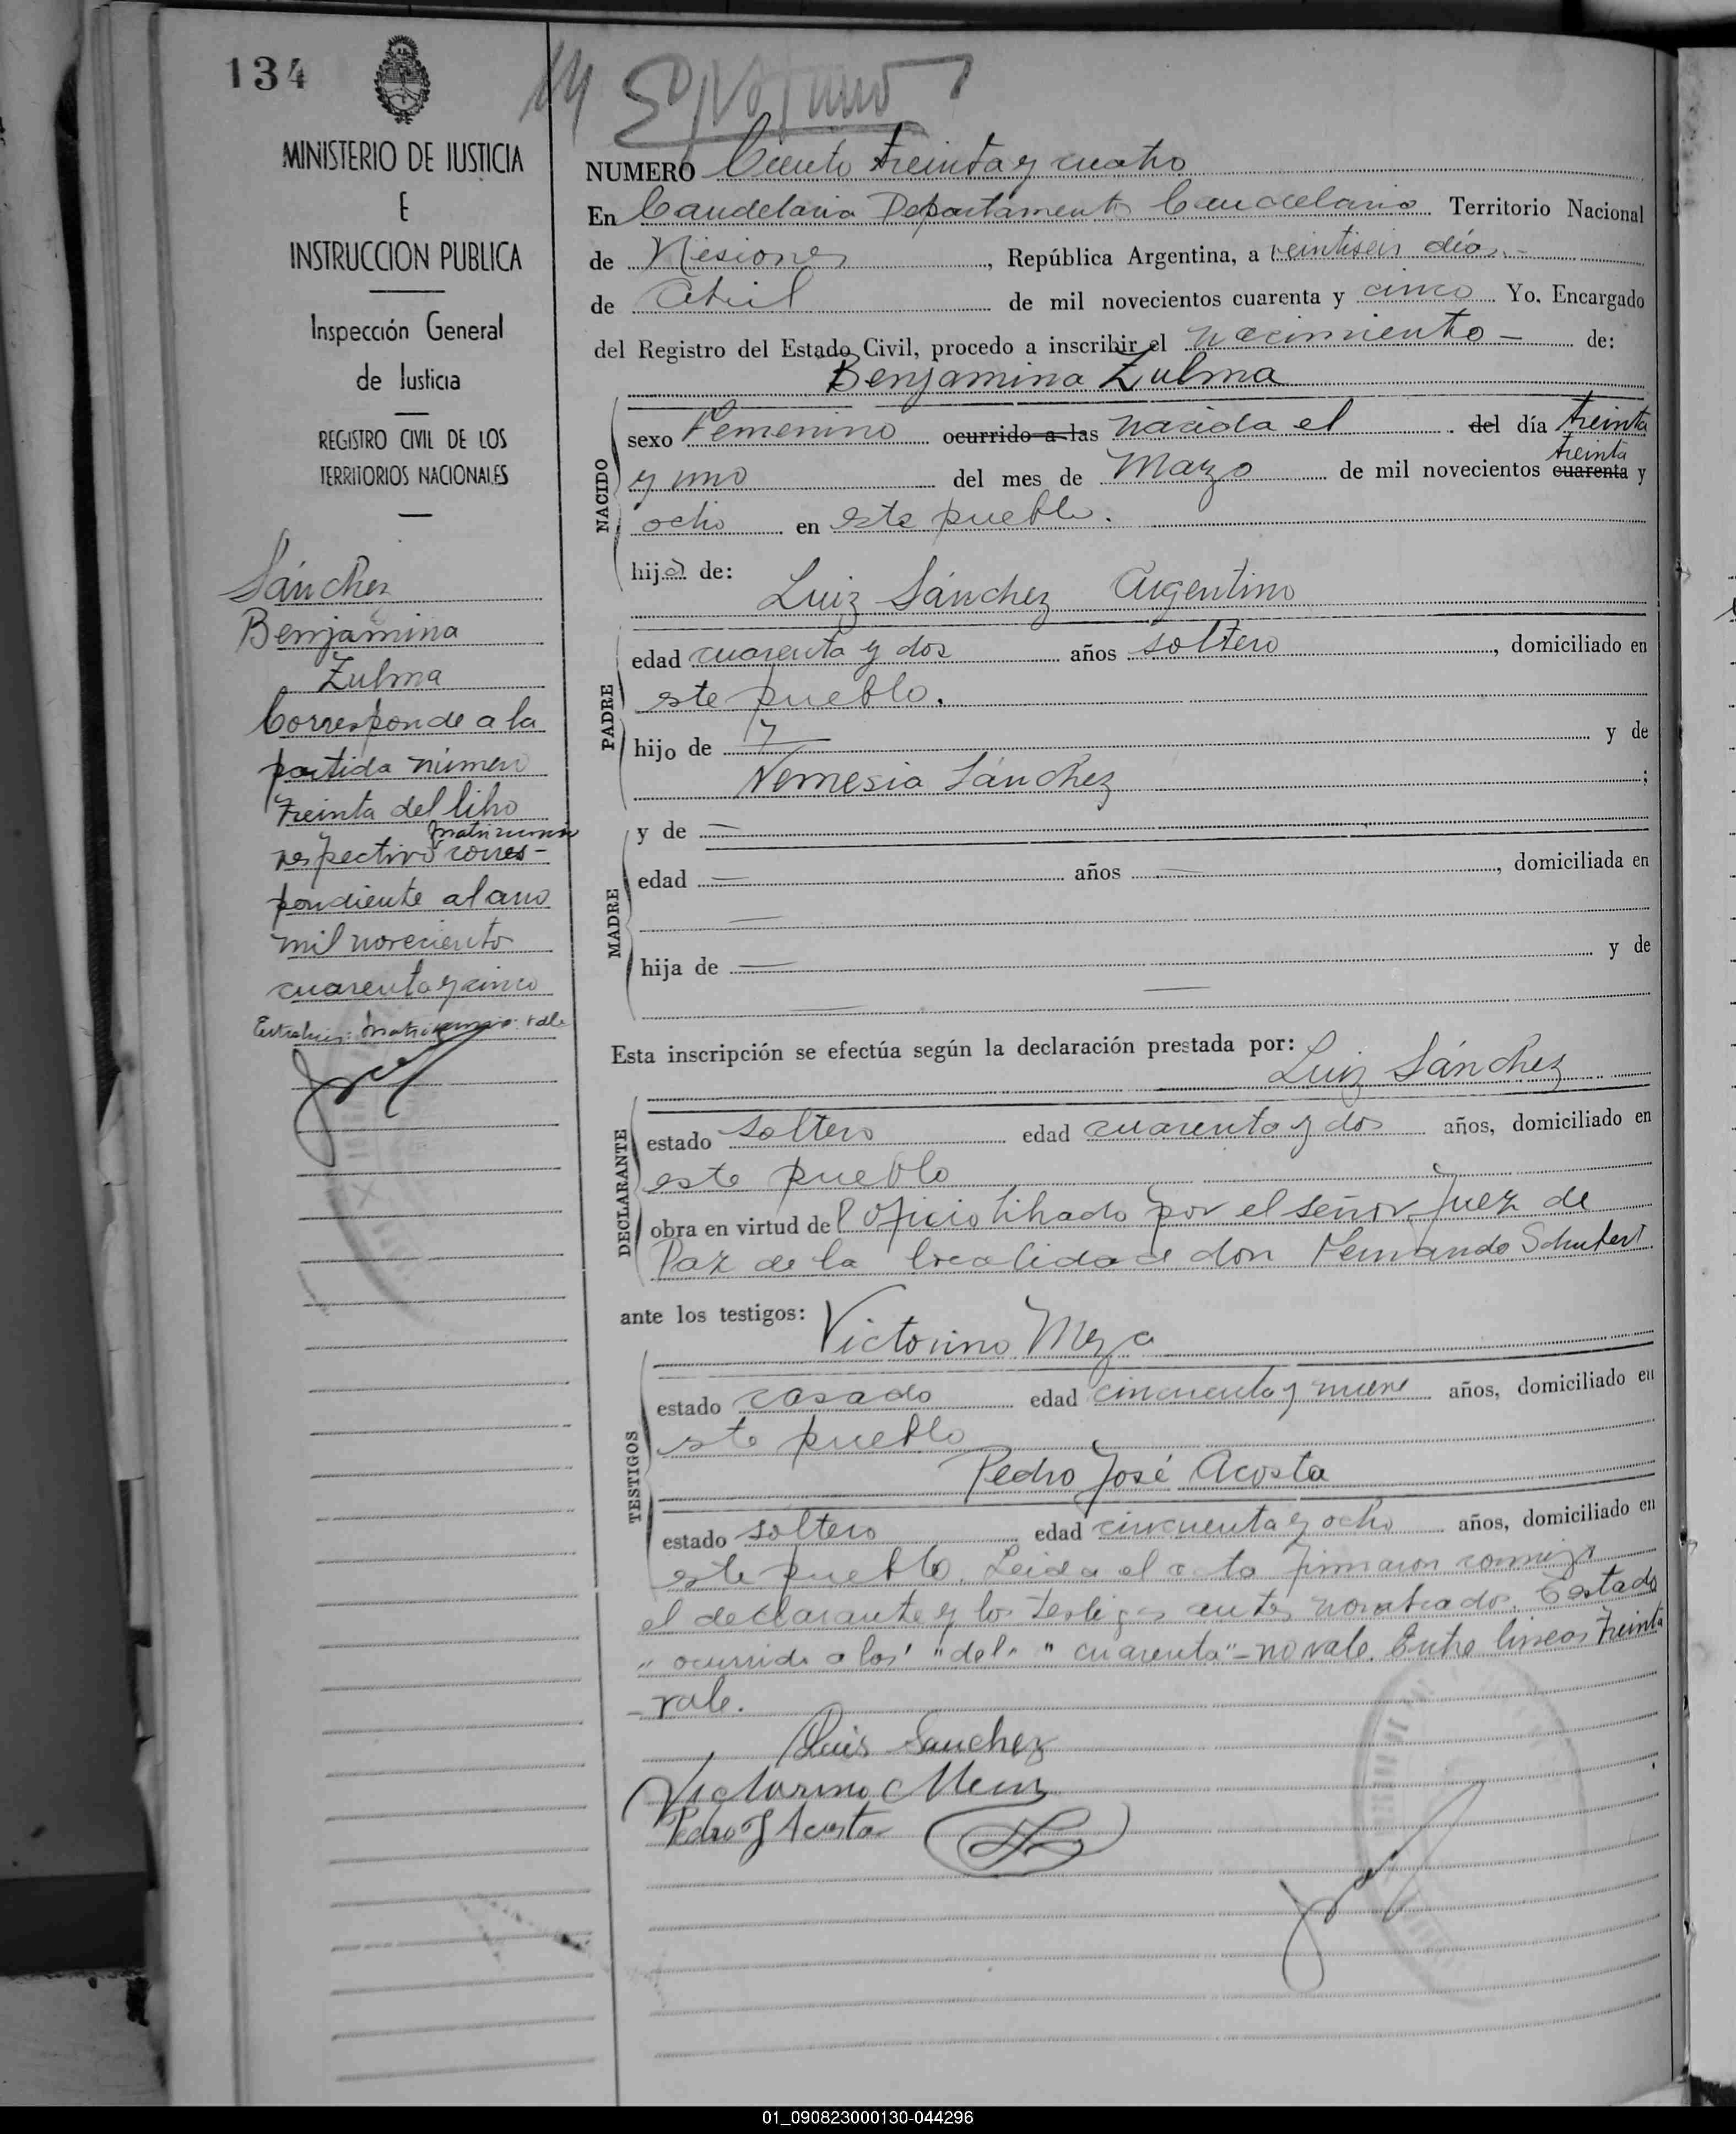 134
MINISTERIO DE JUSTICIA
E
INSTRUCCION PUBLICA
Inspección General
de Justicia
REGISTRO CIVIL DE LOS
TERRITORIOS NACIONALES
Sánchez
Benjamina
Zulma
Corresponde a la
partida número
treinta del libro
matrimonio
respectivo corres-
pondiente al ano
mil noveciento
cuarenta y cinco
Entrelineas: matrimonio vale
NUMERO Ciento treinta y cuatro
En Candelaria Departamento Candelaria Territorio Nacional
de Misiones, República Argentina, a veintiseis días
de Abril de mil novecientos cuarenta y cinco Yo, Encargado
del Registro del Estado Civil, procedo a inscribir el nacimiento - de:
Benjamina Zulma
NACIDO
sexo Femenino ocurrido a las nacida el del día treinta
treinta
y uno del mes de Marzo de mil novecientos cuarenta y
ocho en este pueblo.
hija de:
Luiz Sánchez Argentino
PADRE
edad cuarenta y dos años soltero, domiciliado en
este pueblo.
hijo de y de
Nemesia Sánchez;
MADRE
y de —
edad — años —, domiciliada en
—
hija de — y de
— —
Esta inscripción se efectúa según la declaración prestada por:
Luiz Sánchez
DECLARANTE
estado soltero edad cuarenta y dos años, domiciliado en
este pueblo
obra en virtud del oficio librado por el señor Juez de
Paz de la localidad don Fernando Schubert
ante los testigos:
Victorino Meza
TESTIGOS
estado casado edad cincuenta y nueve años, domiciliado en
este pueblo
Pedro José Acosta
estado soltero edad cincuenta y ocho años, domiciliado en
este pueblo. Leida el acta firmaron conmigo
el declarante y los testigos antes nombrados. Testado
"ocurrido a las" "del" "cuarenta" - no vale. Entre lineas treinta
- vale.
Luis Sanchez
Victorino Meza
Pedro J Acosta
01_090823000130-044296